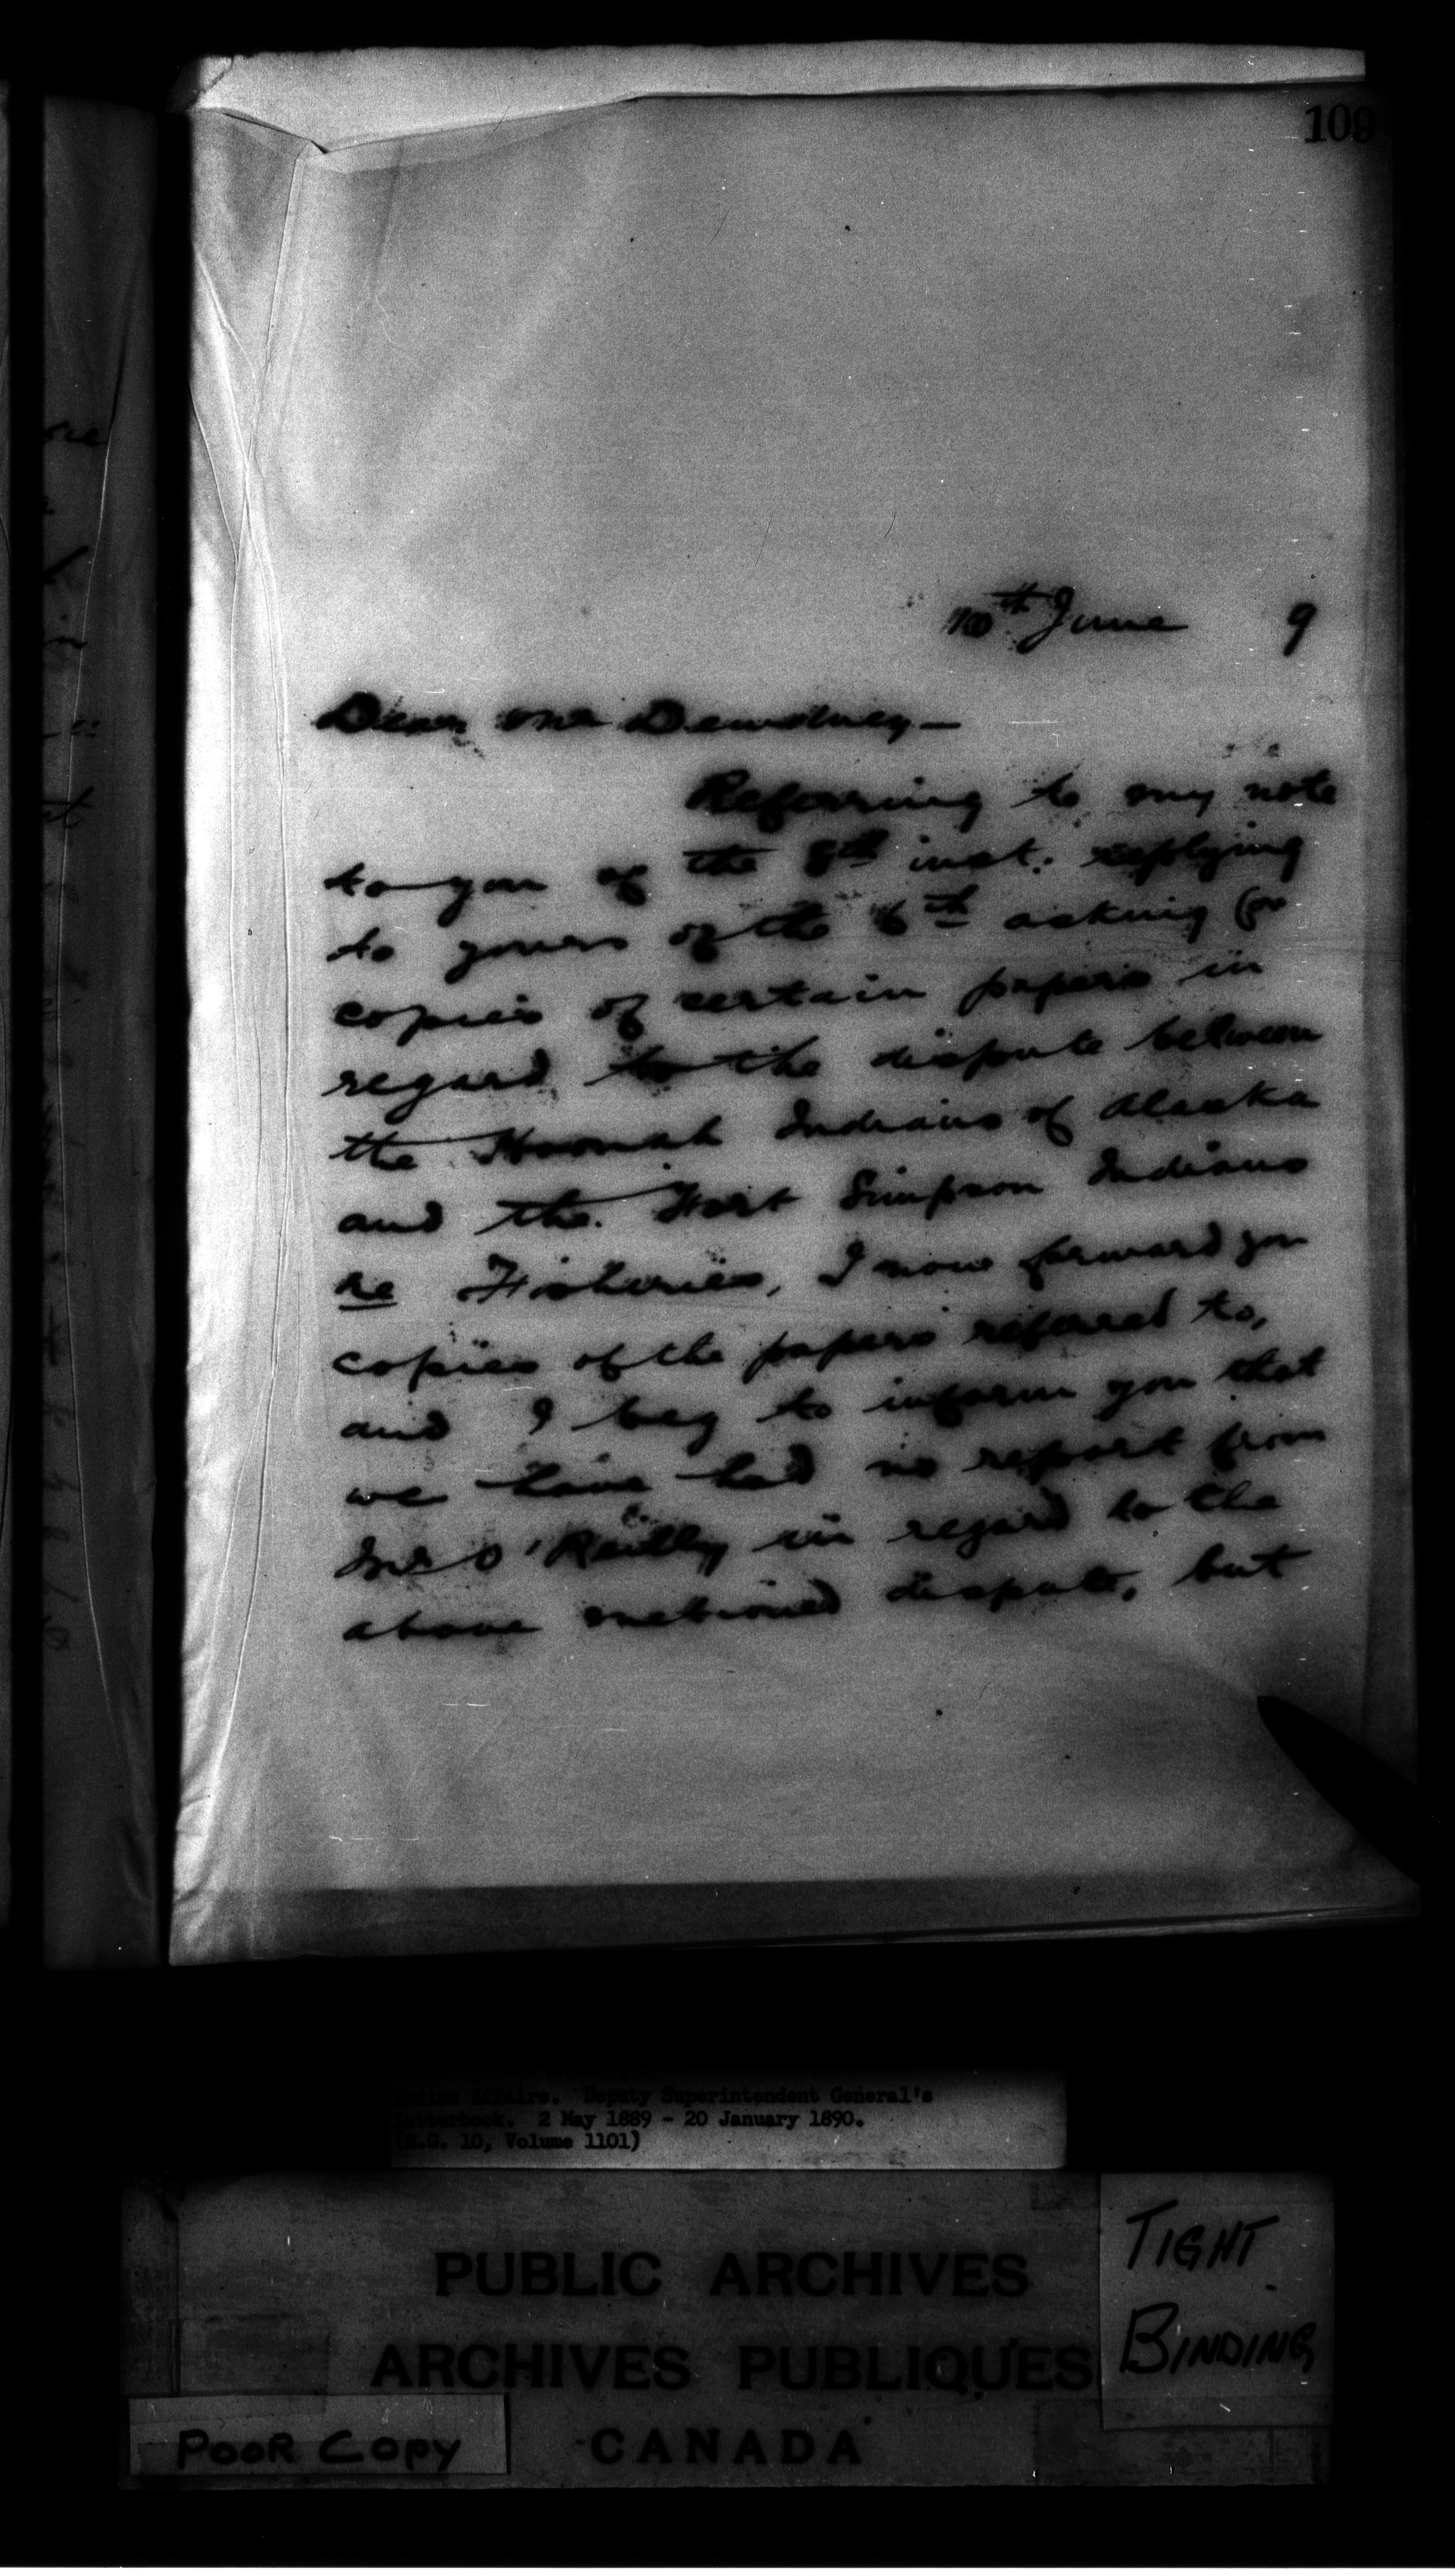 109
10th June 9
Dear Mr Dewdney—
Referring to my note
to you of the 8th inst. replying
to yours of the 6th asking for
copies of certain papers in
regard to the dispute between
the Hoonah Indians of Alaska
and the Fort Simpson Indians
re Fisheries, I now forward you
copies of the papers referred to,
and I beg to inform you that
we have had no report from
Mr O'Reilly in regard to the
above metioned dispute, but
Indian Affairs. Deputy Superintendent General's
Letterbook. 2 May 1889 - 20 January 1890.
(R.G. 10, Volume 1101)
PUBLIC ARCHIVES
ARCHIVES PUBLIQUES
CANADA
TIGHT
BINDING
POOR COPY